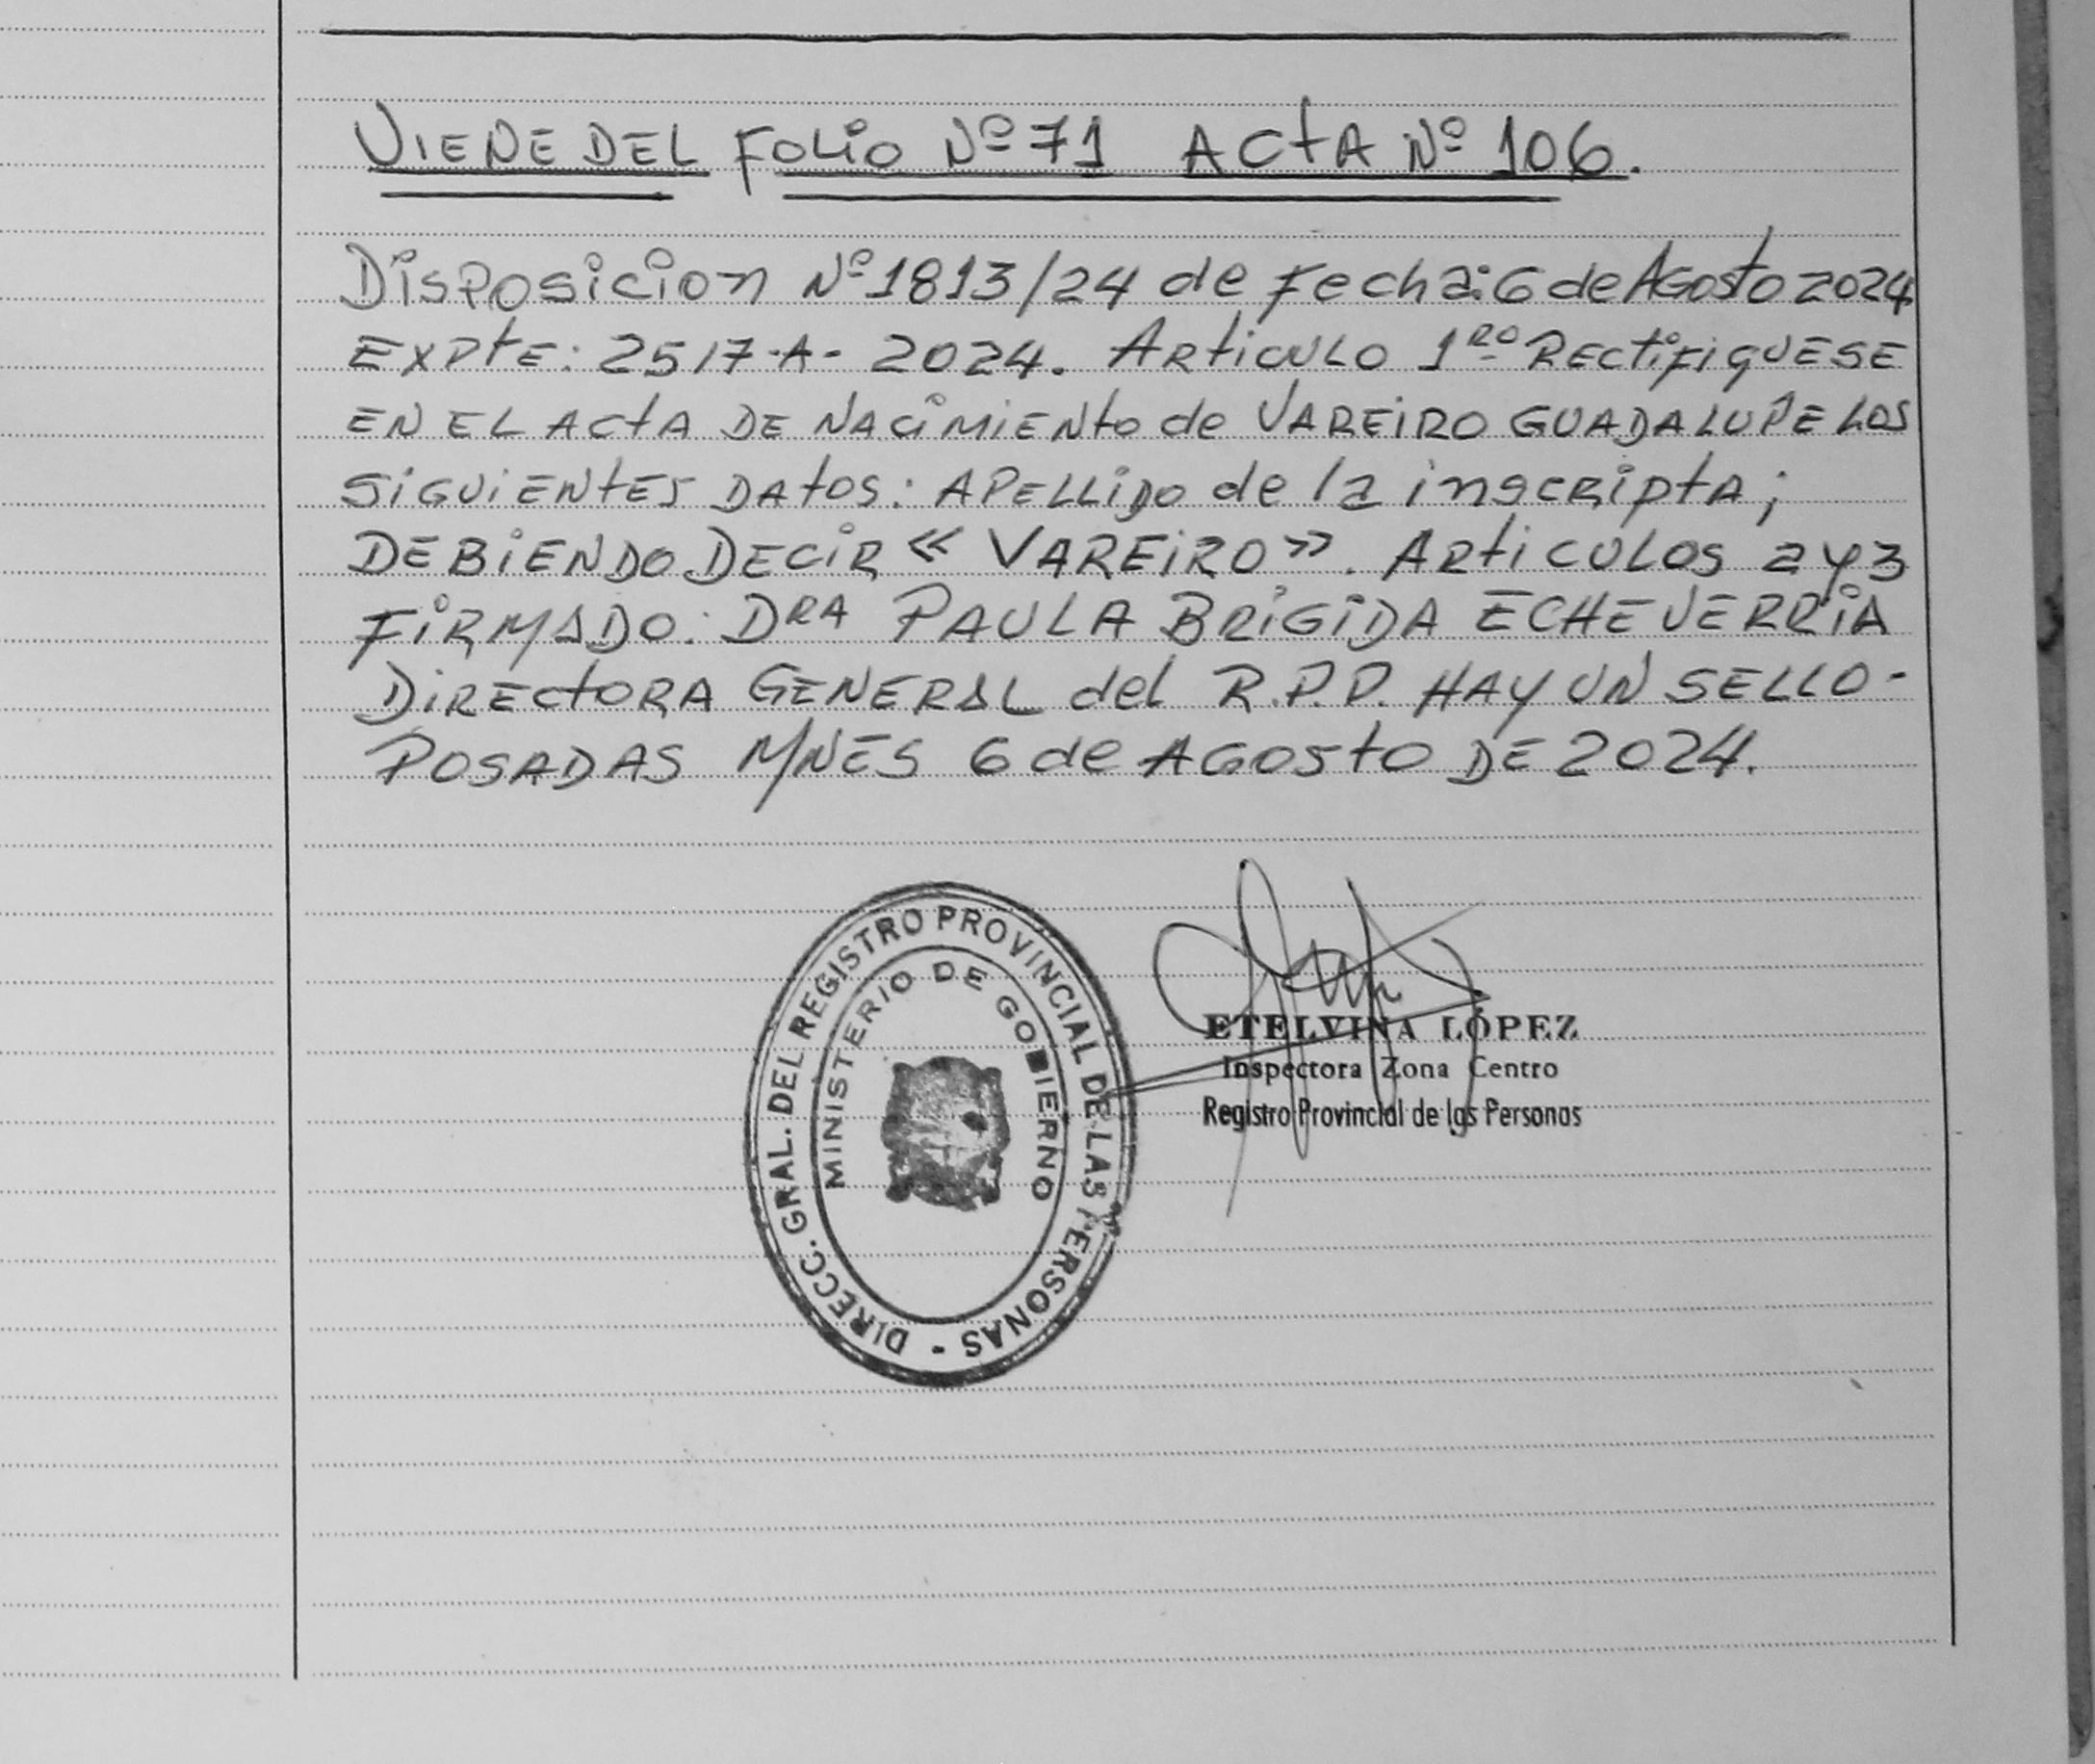 VIENE DEL FOLIO Nº 71 ACTA Nº 106.
Disposicion Nº 1813/24 de Fecha: 6 de Agosto 2024
EXPTE: 2517-A- 2024. Articulo 1RO RECTIFIQUESE
EN EL ACTA DE NACIMIENTO de VAREIRO GUADALUPE LOS
SIGUIENTES DATOS: APELLIDO de la inscripta;
DEBIENDO DECIR « VAREIRO ». ARTICULOS 2 y 3
FIRMADO: DRA PAULA BRIGIDA ECHEVERRIA
DIRECTORA GENERAL del R.P.P. HAY UN SELLO-
POSADAS MNES 6 de AGOSTO DE 2024.
DIRECC. GRAL. DEL REGISTRO PROVINCIAL DE LAS PERSONAS -
MINISTERIO DE GOBIERNO
ETELVINA LÓPEZ
Inspectora Zona Centro
Registro Provincial de las Personas